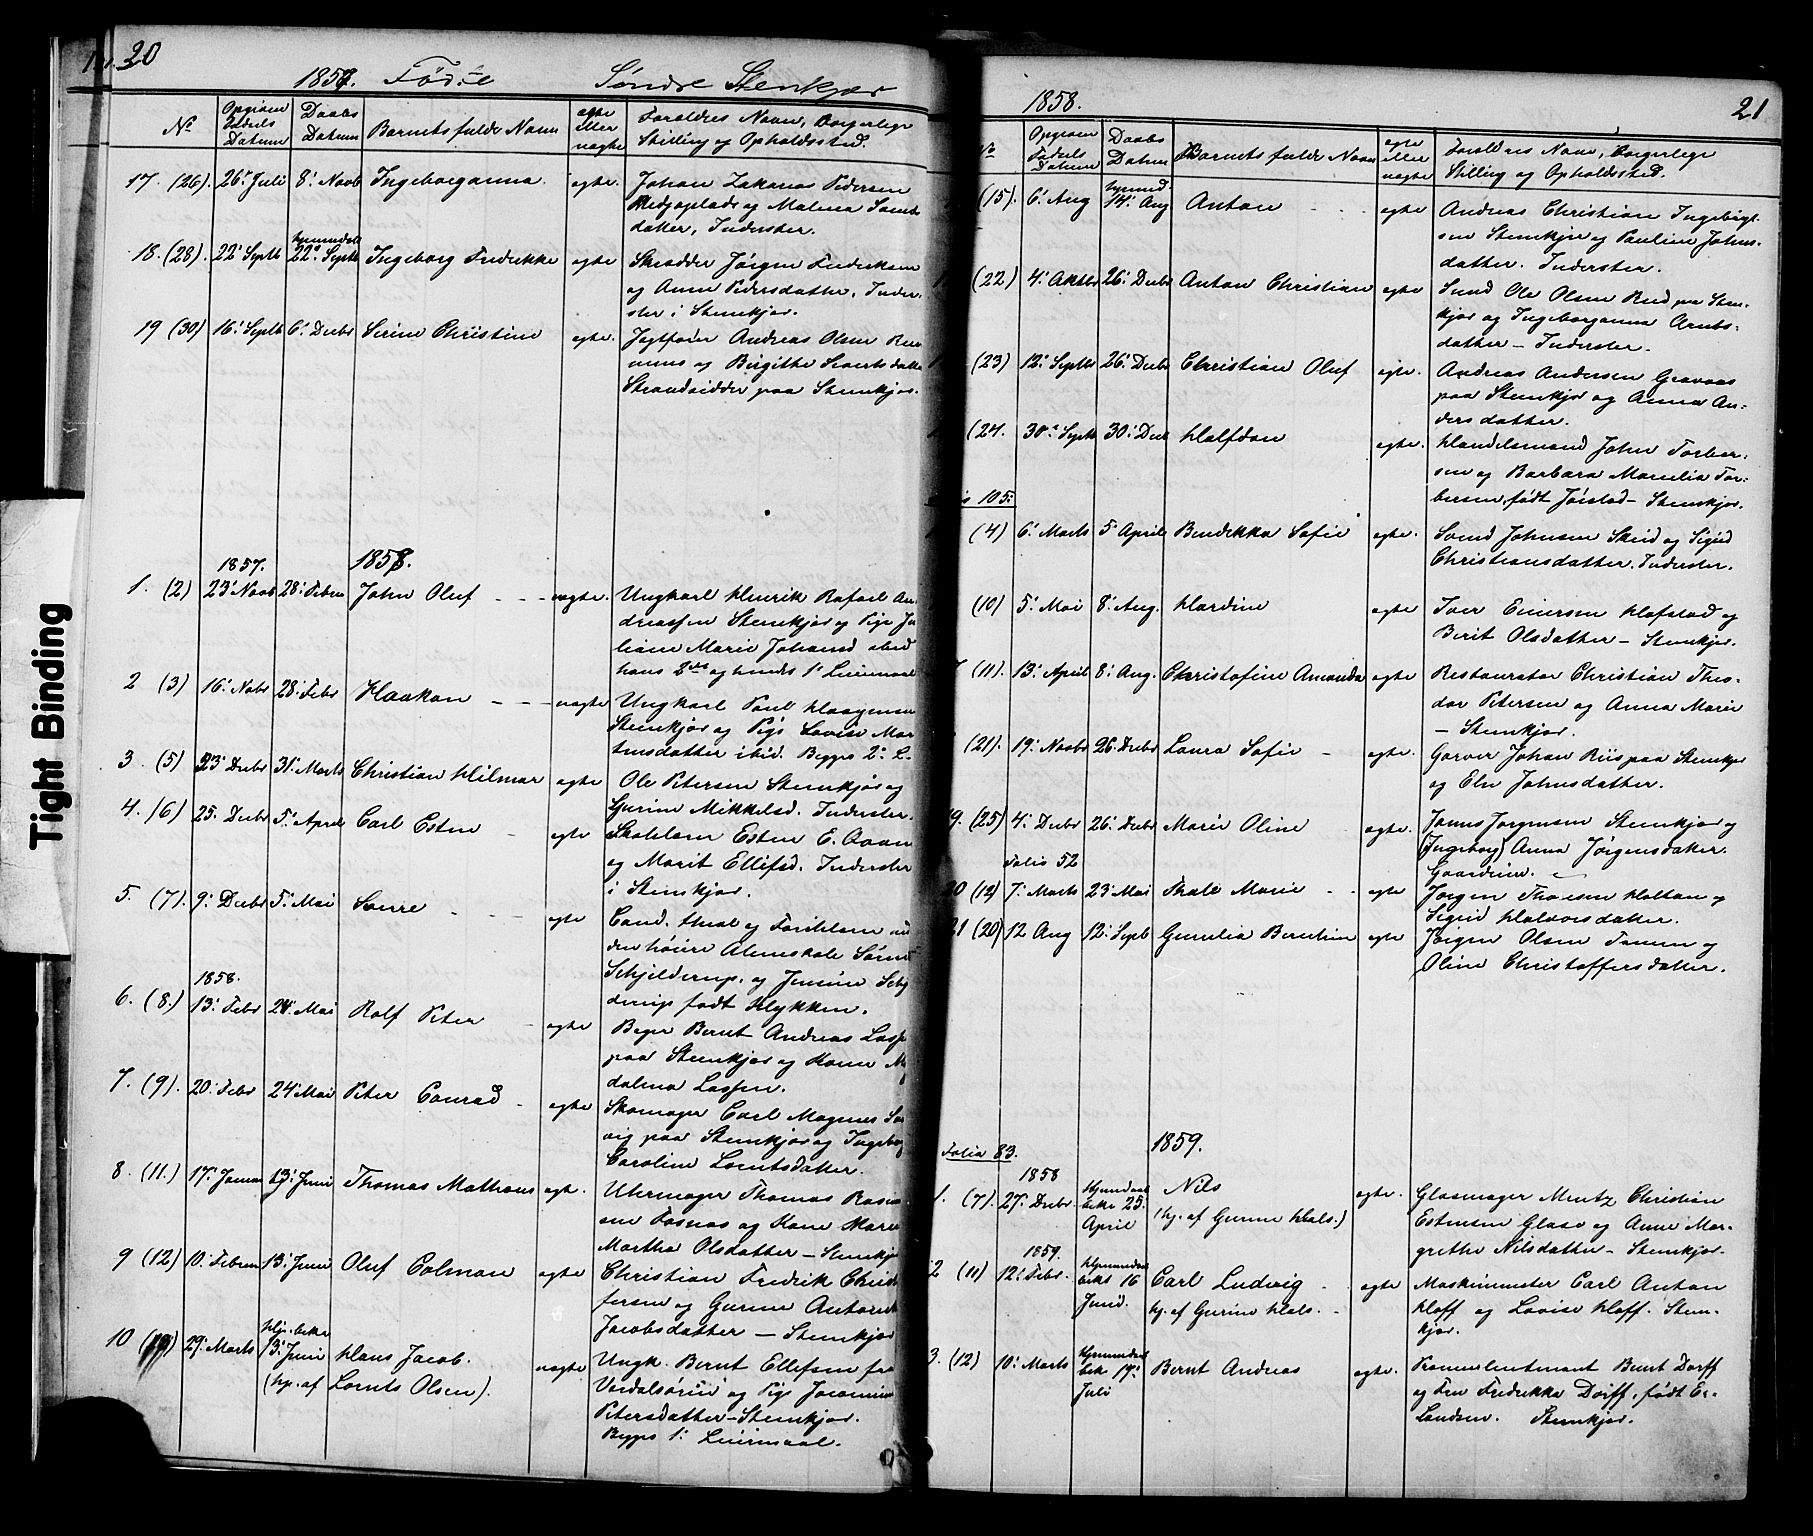 20
1857. Födte Söndre Stenkjær
No
Opgiven Fødsels Datum
Daabs Datum
Barnets fulde Navn
egte eller uegte
Foreldres Navn, Borgerlige Stilling og Opholdssted.
17. (26). 26' Juli 8' Novb Ingeborganna. egte. Johan Zakarias Pedersen
og Malena
datter, Inderster.
18. (28). 22' Septb hjemmedøbt 22' Septb Ingeborg Fredrikke egte Skrædder Jörgen Fredriksen
og Anne Pedersdatter, Inder-
ster i Stenkjær.
19 (30) 16' Septb 6' Decbr Serine Christine egte. Jagtfører Andreas Olsen
og Birgithe Sivertsdatter
Strandsidder paa Stenkjær.
1857. 1858.
1. (2) 23' Novb 28' Febru John Oluf - - - uegte. Ungkarl Henrik Rafael An
dreassen Stenkjær og Pige Ju
liane Marie Johansd ibid
hans 2det og hendes 1' Leiermaal
2 (3) 16' Novbr 28' Febr Haakon - - - uegte Ungkarl Paul Haagensen
Stenkjær og Pige Lovise Mor
tensdatter ibid. Begges 2' L.
3. (5) 23' Decbr 31' Marts Christian Hilmar egte Ole Petersen Stenkjær og
Gurine Mikkelsd. Inderster.
4. (6) 25. Decbr 5' April Carl Esten - egte Skolelærer Esten E.
og Marit Ellefsd. Inderster
i Stenkjær.
5. (7). 9' Decbr 5' Mai Sverre - - - egte Cand. theol og Förstelærer ved
den höiere Almueskole Sören
Schjelderup, og Jensine Schj
derup født Klykken.
1858.
6. (8.) 13' Febr 24' Mai Rolf Peter - egte Bager Bernt Andreas Lassen
paa Stenkjær og Kone
dalena Lassen.
7. (9). 20' Febr 24' Mai Peter Conrad - egte Skomager Carl Magnus
vig paa Stenkjær og Ingeborg
Caroline Lorntsdatter.
8. (11.) 17' Januar 13' Juni Thomas Matheus egte. Uhrmager Thomas
sen Fosnas og Kone Maren
Martha Olsdatter - Stenkjær
9 (12) 10' Februar 13' Juni Oluf Colman egte Christian Fredrik
fersen og Gurine Antonette
Jacobsdatter - Stenkjær
10 29' Marts Hj. bekr 13' Juni Hans Jacob.
(hj. af Lornts Olsen). uegte Ungk. Bernt Ellefsen fra
Verdalsören og Pige Jacomine
Petersdatter - Stenkjær.
Begges 1' Leiermaal.
1858. 21
No
Opgiven Fødsels Datum
Daabs Datum
Barnets fulde Navn
egte eller uegte
Foreldres Navn, Borgerlige Stilling og Opholdssted.
(15). 6' Aug hjemmed 14' Aug Anton - - - egte. Andreas Christian Ingebrigt-
sen Stenkjær og Pauline Johns-
datter. Inderster.
(22) 4' Oktbr 26' Decbr Anton Christian egte Smed Ole Olsen paa Sten-
kjær og Ingeborganna Arnts-
datter - Inderster.
(23) 12' Septbr 26' Decbr Christian Oluf egte. Andreas Andersen Gravaas
paa Stenkjær og Anna An-
dersdatter.
(24. 30' Septb 30' Decb Halfdan egte. Handelsmand John Torber-
sen og Barbara Marselia Tor-
bersen, født Jørstad - Stenkjær.
105:
(4) 6' Marts 5' April Bendikka Sofie egte. Svend Johnsen Skeid og Sigrid
Christiansdatter. Inderster.
(10) 5' Mai 8' Aug. Hardine egte Iver Hafstad og
Berit Olsdatter - Stenkjær.
(11). 13' April 8' Aug. Christofine Amanda egte Restauratør Christian Theo-
dor Petersen og Anna Marie
- Stenkjær.
(21). 19' Novbr 26' Decbr Laura Sofie - egte. Garver Johan Riis paa Stenkjær
og Elen Johnsdatter.
9. (25) 4' Decbr 26' Decbr Marie Oline egte. Jonas Jørgensen Stenkjær og
(Ingeborg) Anna Jørgensdatter.
Folio 52
20 (12) 7' Marts 23' Mai Thale Marie - - egte Jørgen Thoresen og
Sigrid Halvorsdatter.
21 (20) 12 Aug 12' Septb Gunelia Berntine egte Jørgen Olsen og
Oline Christoffersdatter.
Folio 83. 1859.
1858
1. (7). 27' Decbr Hjemdøbt bekr 25' April Nils
(hj. af Gurine Hals.) egte. Glasmager Mentz Christian
Estensen Glasø og Anne Mar-
grethe Nilsdatter - Stenkjær.
1859.
2 (11) 12' Febr. Hjemmedøbt bekr 16 Juni. Carl Ludvig -
hj. af Gurine Hals. - egte Maskinmester Carl Anton
Hoff og Lovise Hoff. Sten-
kjær.
3. (12) 10' Marts Hjemmedøbt bek 17' Juli Bernt Andreas egte. Premierlieutnant Bernt Dorff
og Fru Fredrikka Dorff, født Er-
landsen. Stenkjær.
Tight Binding